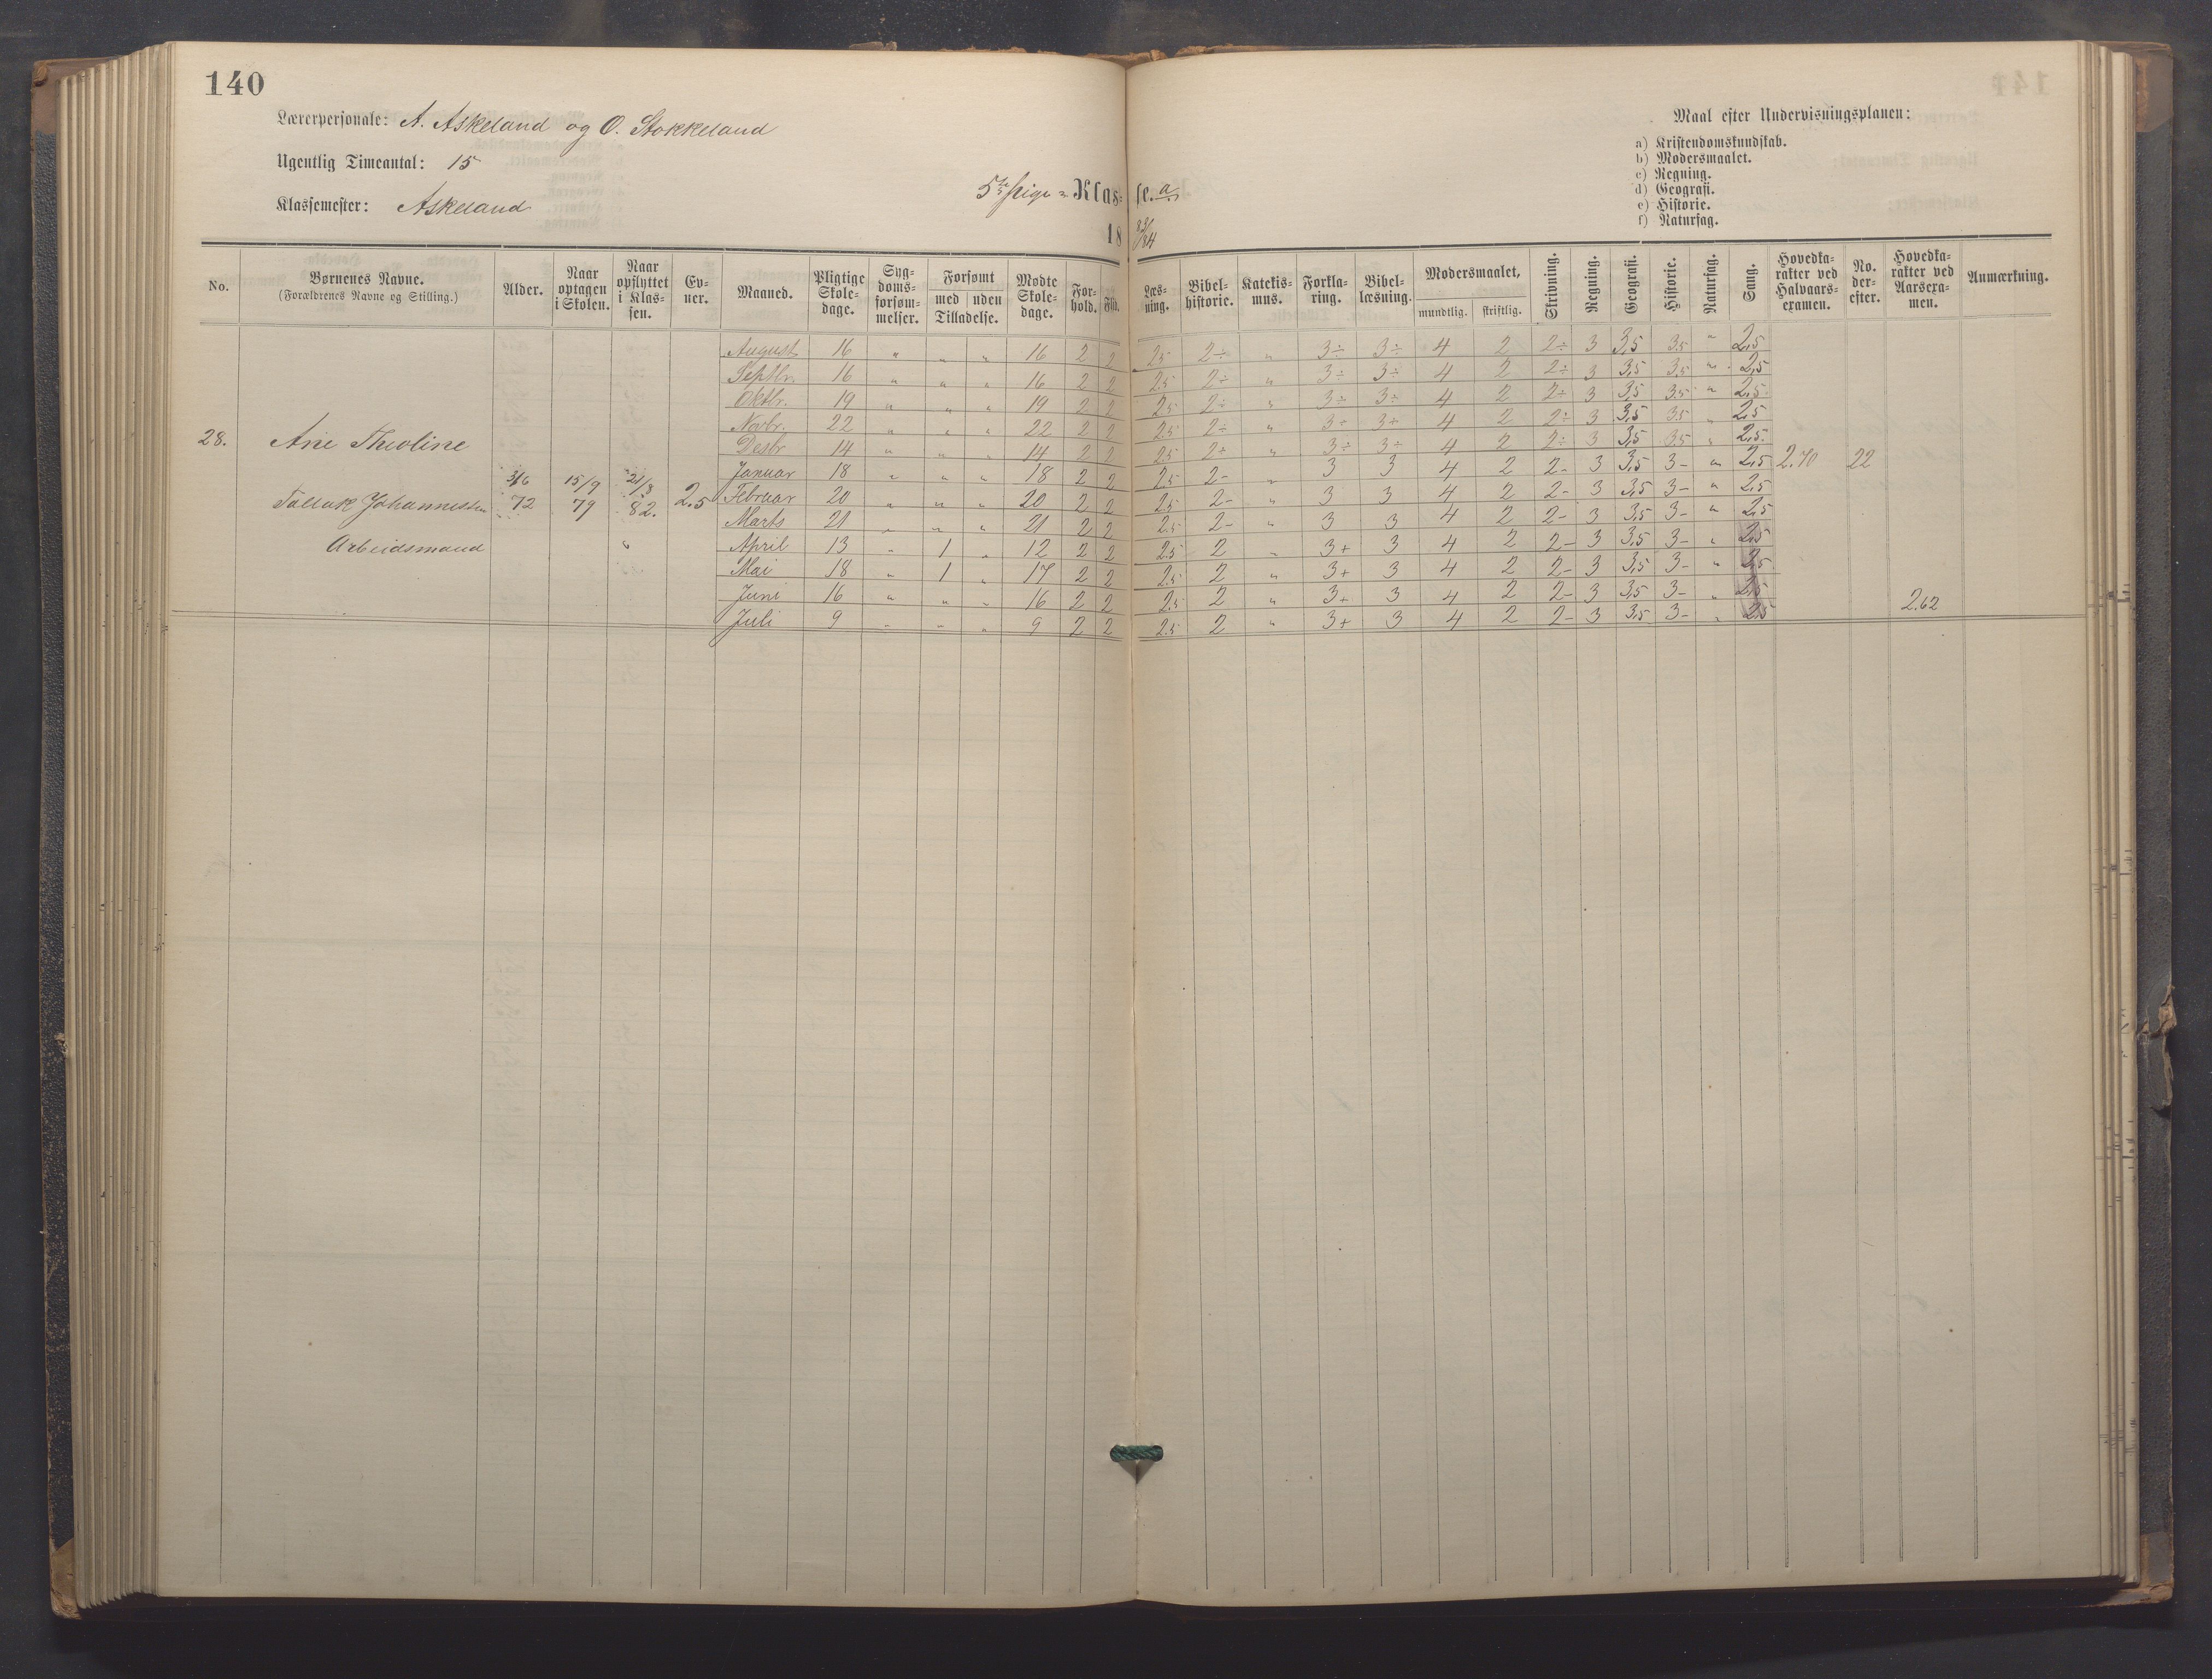 140
Lærerpersonale: A. Askeland og O. Stokkeland
Ugentlig Timeantal: 15
Klassemester: Askeland
5te Pige = Klasse. a
18 83/84
Maal efter Undervisningsplanen:
a) Kristendomskundskab.
b) Modersmaalet.
c) Regning.
d) Geografi.
e) Historie.
f) Naturfag.
No. | Børnenes Navne. (Forældrenes Navne og Stilling.) | Alder. | Naar optagen i Skolen. | Naar opflyttet i Klassen. | Evner. | Maaned. | Pligtige Skoledage. | Sygdomsforsømmelser. | Forsømt med | uden Tilladelse. | Mødte Skoledage. | Forhold. | Flid. | Læsning. | Bibelhistorie. | Katekismus. | Forklaring. | Bibellæsning. | Modersmaalet, mundtlig. | skriftlig. | Skrivning. | Regning. | Geografi. | Historie. | Naturfag. | Sang. | Hovedkarakter ved Halvaarsexamen. | No. derefter. | Hovedkarakter ved Aarsexamen. | Anmærkning.
August 16 " " " 16 2 2 2.5 2÷ " 3÷ 3÷ 4 2 2÷ 3 3,5 3.5 " 2,5
Septbr. 16 " " " 16 2 2 2.5 2÷ " 3÷ 3÷ 4 2 2÷ 3 3,5 3.5 " 2,5
Oktbr. 19 " " " 19 2 2 2.5 2÷ " 3÷ 3÷ 4 2 2÷ 3 3,5 3.5 " 2,5
Novbr. 22 " " " 22 2 2 2.5 2÷ " 3÷ 3÷ 4 2 2÷ 3 3,5 3.5 " 2,5
28. Ane Theoline
Desbr 14 " " " 14 2 2 2.5 2÷ " 3÷ 3÷ 4 2 2÷ 3 3,5 3.5 " 2,5
Januar 18 " " " 18 2 2 2.5 2- " 3 3 4 2 2- 3 3,5 3- " 2,5 2.70 22
3/6 15/9 21/8
Tallak Johannessen 72 79 82. 2.5 Februar 20 " " " 20 2 2 2.5 2- " 3 3 4 2 2- 3 3,5 3- " 2,5
Marts 21 " " " 21 2 2 2.5 2- " 3 3 4 2 2- 3 3,5 3- " 2,5
Arbeidsmand
April 13 " 1 " 12 2 2 2.5 2 " 3+ 3 4 2 2- 3 3,5 3- " 2,5
Mai 18 " 1 " 17 2 2 2.5 2 " 3+ 3 4 2 2- 3 3,5 3- " 2,5
Juni 16 " " " 16 2 2 2.5 2 " 3+ 3 4 2 2- 3 3,5 3- " 2,5
Juli 9 " " " 9 2 2 2.5 2 " 3+ 3 4 2 2- 3 3,5 3- " 2,5 2.62